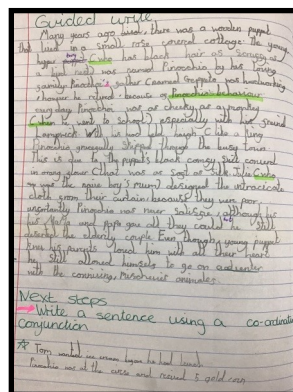 Guided write
Many years ago, there was a wooden puppet
that lived in a small rose covered cottage. the young
who has black hair as
a bird nest) was named Pinocchio by his loving
family. Pinocchio's father (named Geppetto was hardworking
he because of Pinocchio's behaviour
every day. Pinocchio was as cheeky as a monkey
(when he went to school) especially with his friend
With his loud laugh (like a
Pinocchio gracefully skipped through the busy town.
This is due to the puppet's black comfy suit covered
in many (that was as soft as silk. Julie (who
was the boy's mum) designed the
cloth from their curtain because they were poor.
Pinocchio was never although his
his mother and papa gave all they could Still
the elderly couple. Even though, young puppet
his parents loved him with all their heart
he, still allowed himself to go on
with the animates.
Next steps
Write a sentence using a co-ordinating
conjunction
Tom wanted ice cream again he had
Pinocchio was at the circus and received 5 gold coin